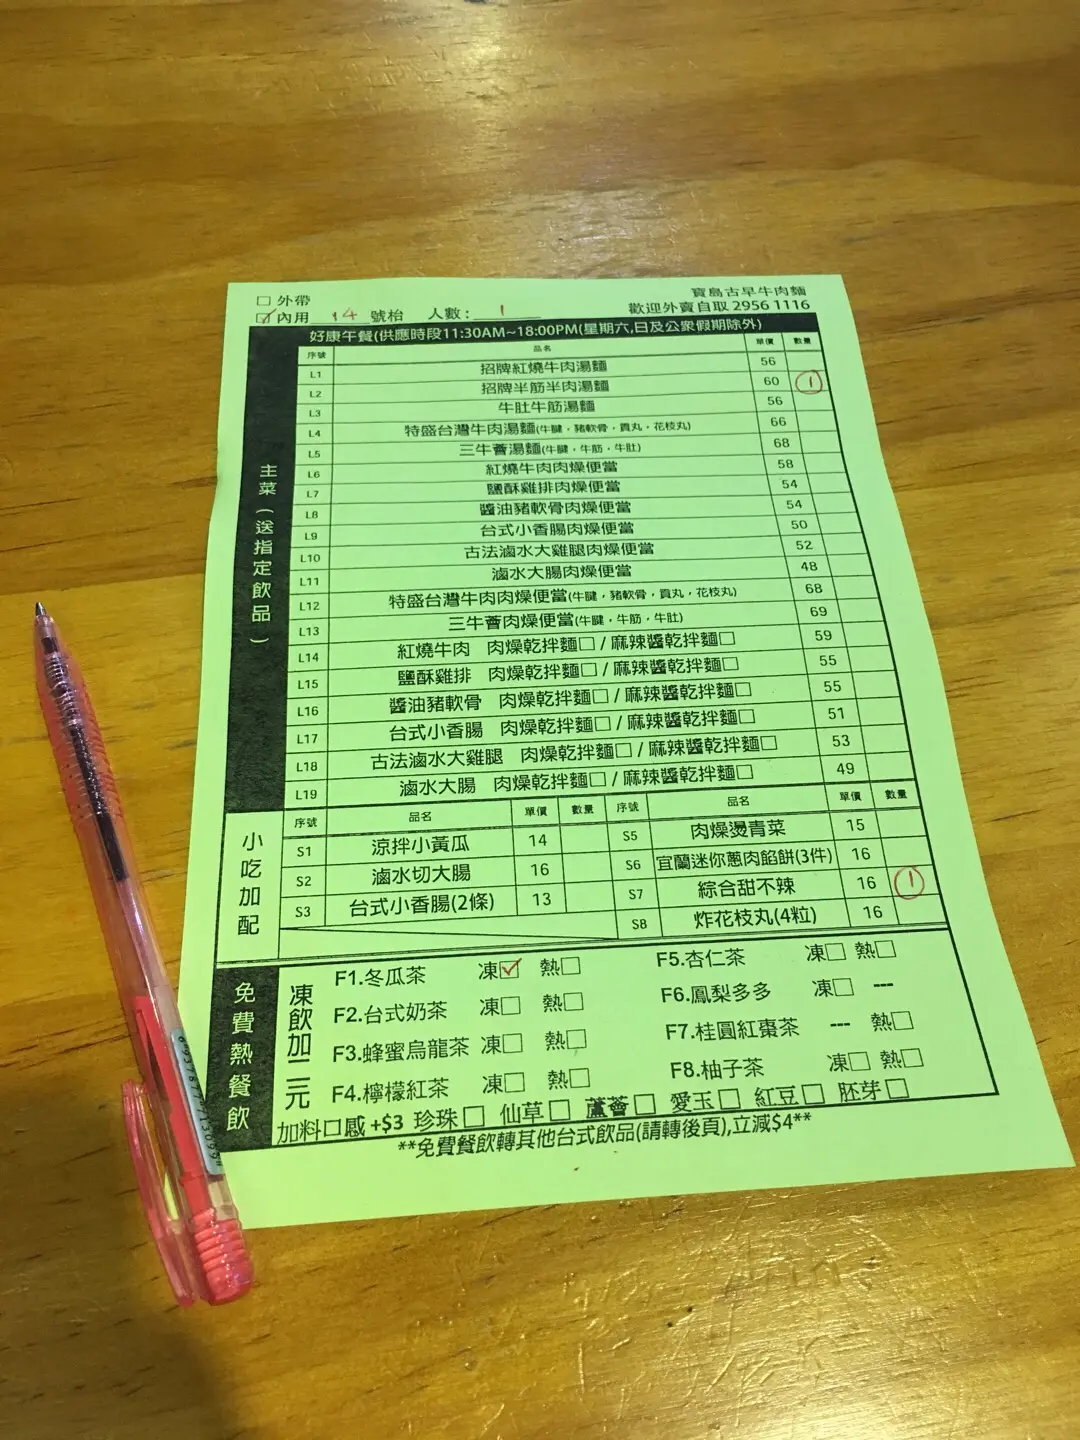 □ 外帶
寶島古早牛肉麵
☑ 內用 14 號枱 人數: 1 歡迎外賣自取 2956 1116
好康午餐(供應時段11:30AM~18:00PM(星期六,日及公衆假期除外)
主菜(送指定飲品)
序號 品名 單價 數量
L1 招牌紅燒牛肉湯麵 56
L2 招牌半筋半肉湯麵 60 1
L3 牛肚牛筋湯麵 56
L4 特盛台灣牛肉湯麵(牛腱,豬軟骨,貢丸,花枝丸) 66
L5 三牛薈湯麵(牛腱,牛筋,牛肚) 68
L6 紅燒牛肉肉燥便當 58
L7 鹽酥雞排肉燥便當 54
L8 醬油豬軟骨肉燥便當 54
L9 台式小香腸肉燥便當 50
L10 古法滷水大雞腿肉燥便當 52
L11 滷水大腸肉燥便當 48
L12 特盛台灣牛肉肉燥便當(牛腱,豬軟骨,貢丸,花枝丸) 68
L13 三牛薈肉燥便當(牛腱,牛筋,牛肚) 69
L14 紅燒牛肉 肉燥乾拌麵□ / 麻辣醬乾拌麵□ 59
L15 鹽酥雞排 肉燥乾拌麵□ / 麻辣醬乾拌麵□ 55
L16 醬油豬軟骨 肉燥乾拌麵□ / 麻辣醬乾拌麵□ 55
L17 台式小香腸 肉燥乾拌麵□ / 麻辣醬乾拌麵□ 51
L18 古法滷水大雞腿 肉燥乾拌麵□ / 麻辣醬乾拌麵□ 53
L19 滷水大腸 肉燥乾拌麵□ / 麻辣醬乾拌麵□ 49
小吃加配
序號 品名 單價 數量 序號 品名 單價 數量
S1 涼拌小黃瓜 14 S5 肉燥燙青菜 15
S2 滷水切大腸 16 S6 宜蘭迷你蔥肉餡餅(3件) 16
S3 台式小香腸(2條) 13 S7 綜合甜不辣 16 1
S8 炸花枝丸(4粒) 16
免費熱餐飲
凍飲加二元
F1.冬瓜茶 凍☑ 熱□ F5.杏仁茶 凍□ 熱□
F2.台式奶茶 凍□ 熱□ F6.鳳梨多多 凍□ ---
F3.蜂蜜烏龍茶 凍□ 熱□ F7.桂圓紅棗茶 --- 熱□
F4.檸檬紅茶 凍□ 熱□ F8.柚子茶 凍□ 熱□
加料口感 +$3 珍珠□ 仙草□ 蘆薈□ 愛玉□ 紅豆□ 胚芽□
**免費餐飲轉其他台式飲品(請轉後頁),立減$4**